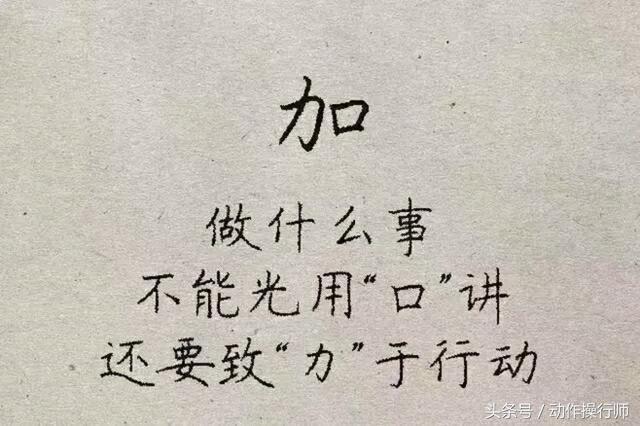 加
做什么事
不能光用“口”讲
还要致“力”于行动
头条号 / 动作操行师